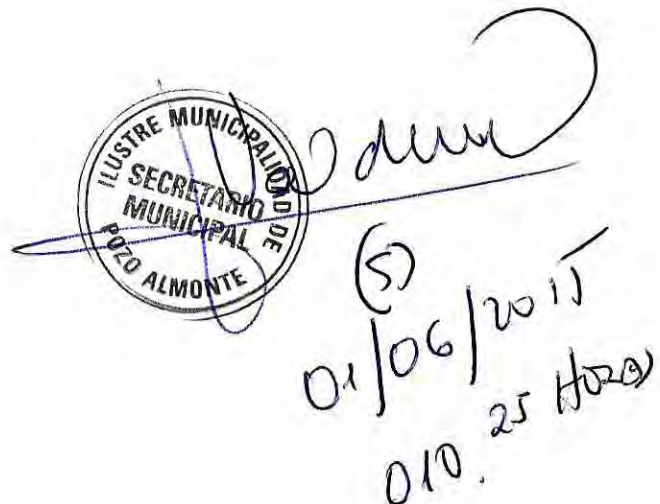 ILUSTRE MUNICIPALIDAD DE
POZO ALMONTE
SECRETARIO
MUNICIPAL
(S)
01/06/2015
010.25 Horas